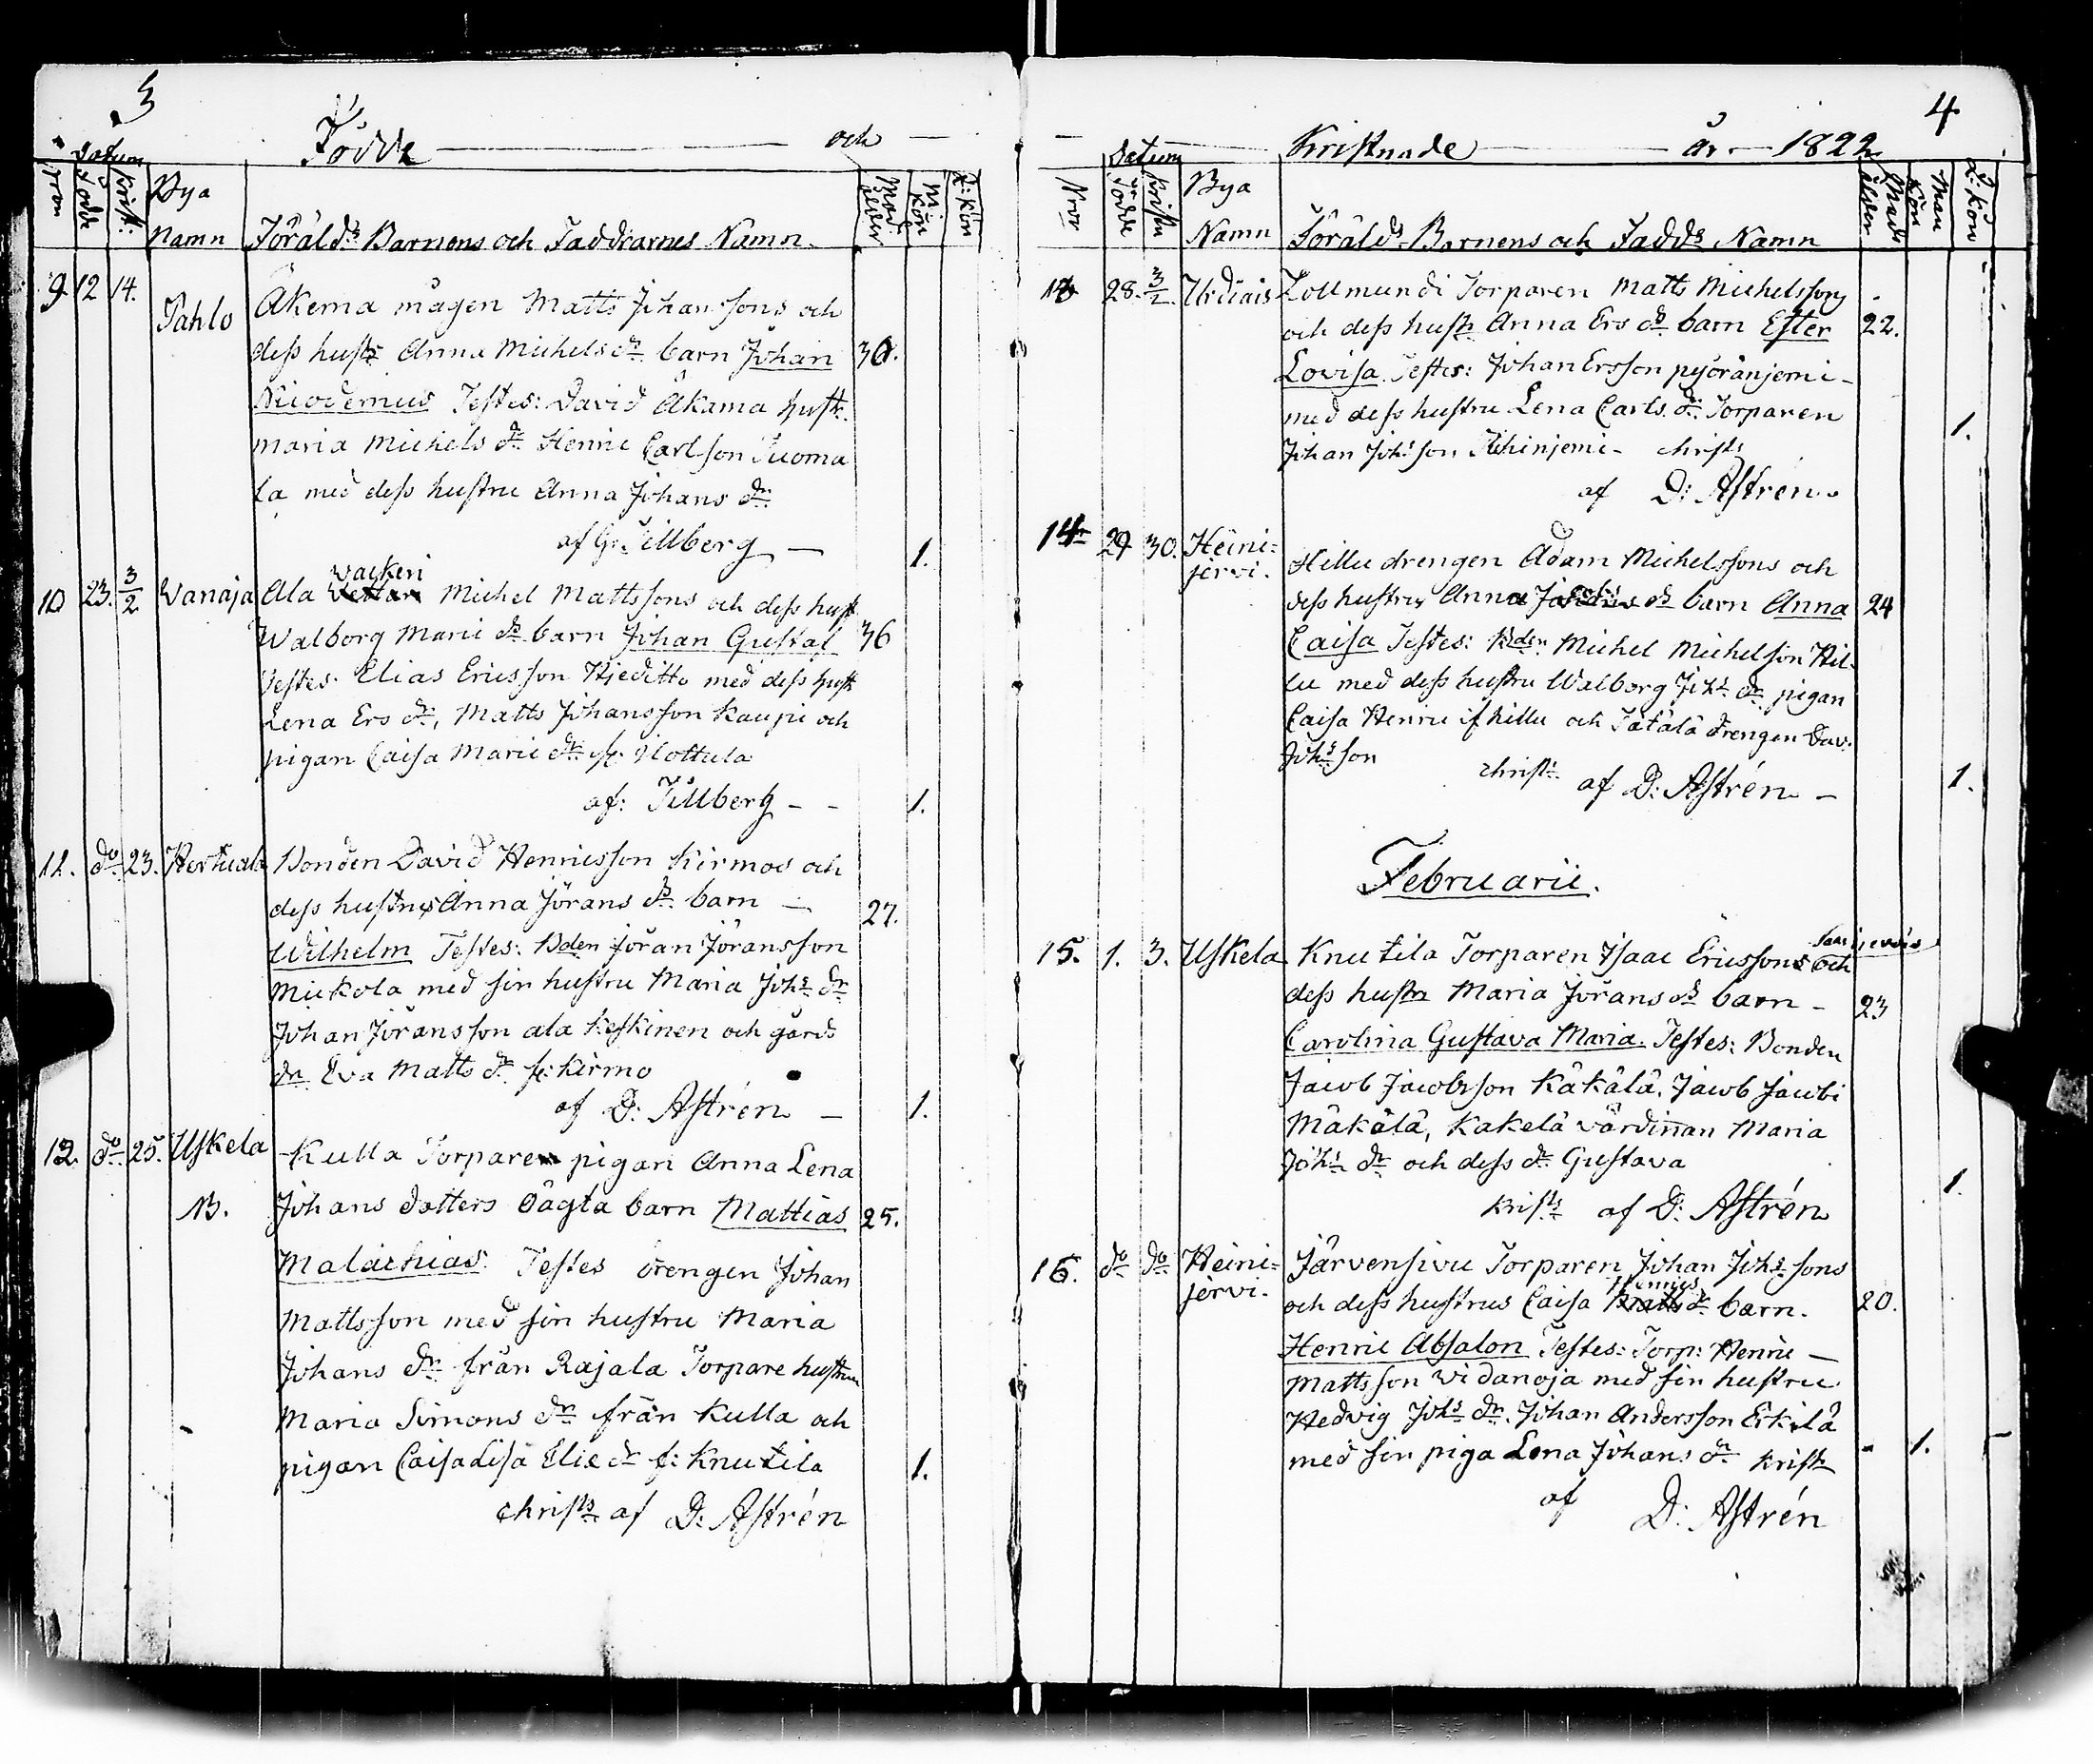 3
Födde och
Datum
Nron
Födde
Krist:
Bya
Namn
Föräldrs Barnens och Faddrarnes Namn.
Mod. ålder
M: Kön
Q: Kön
9. 12 14. Pahlo
Åkema mågen Matts Johanssons och
dess hustr Anna Michels dr barn Johan 30.
Nicodemus Testes: David Åkama hustr.
Maria Michels dr Henric Carlson Tuoma
la med dess hustru Anna Johans dr
af G: Tillberg — 1.
wackeri
10 23. 3/2 Wanaja Ala Michel Mattssons och dess hust
Walborg Marii dr barn Johan Gustaf 36
Testes: Elias Ericsson Hjeditto med dess hustr
Lena Ers dr, Matts Johansson Kaupi och
pigan Caisa Marii dr fr. Nottula
af: Tillberg - - 1.
11. do 23. Hertuala Bonden David Henricsson Kirmos och
dess hustrus Anna Jörans dr barn — 27.
Wilhelm Testes: Bden Jöran Jöransson
Mickola med sin hustru Maria Johs dr
Johan Jöransson ala Keskinen och gårds
dr Eva Matts dr fr: Kirmo
af D: Astrén — 1.
12. do 25. Uskela Kulla Torpare pigan Anna Lena
B. Johans dotters oägta barn Mattias 25.
Malachias. Testes drengen Johan
Mattsson med sin hustru Maria
Johans dr från Rajala Torpare hustrun
Maria Simons dr från Kulla och
pigan Caisa Lisa Eliæ dr f: Knutila 1.
christs af D: Astrén
4
Kristnade år 1822
Datum
Nror
Födde
Kristn
Bya
Namn
Förälds Barnens och Fadds Namn
Mods ålder
Man Kön
Q: Kön
28. 3/2. Zollmundi Torparen Matts Michelssons
och dess hustr Anna Ers dr barn Ester 22.
Lovisa. Testes: Johan Ersson pyöränjemi -
med dess hustru Lena Carls dr Torparen
Johan Johsson christs 1.
af D: Astrén.
14 29 30. Heini=
jervi.
Hillu drengen Adam Michelssons och
dess hustrus Anna dr barn Anna 24
Caisa Testes: Bden Michel Michelson Hil-
lu med dess hustru Walborg Johs dr pigan
Caisa Henric if hillu och Tätälä drengen Dav:
Johsson
christs af D: Astrén — 1.
Februarii.
15. 1. 3. Uskela Knutila Torparen Isaac Ericssons och
dess hustr Maria Jörans dr barn - 23
Carolina Gustava Maria. Testes: Bonden
Jacob Jacobsson Käkälä, Jacob Jacobi
Mäkälä, Kakelä värdinnan Maria
Johs dr och dess dr Gustava 1.
krists af D: Astrén
16. do do Heini=
jervi.
Järvensivu Torparen Johan Johssons
Henrics
och dess hustrus Caisa dr barn. 20.
Henric Absalon Testes: Torp: Henric —
Mattsson Widanoja med sin hustru
Hedvig Johs dr. Johan Andersson Erkilä
med sin piga Lena Johans dr krists 1.
af D: Astrén